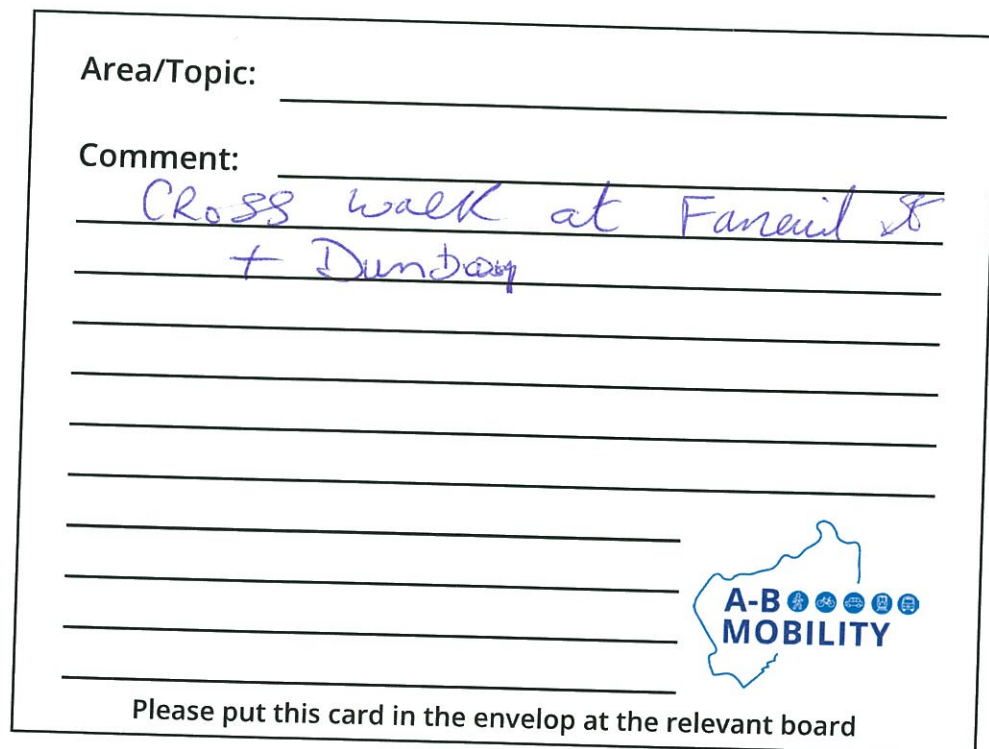 Area/Topic:
Comment:
CRoss walk at Faneuil St
+ Dunboy
A-B
MOBILITY
Please put this card in the envelop at the relevant board